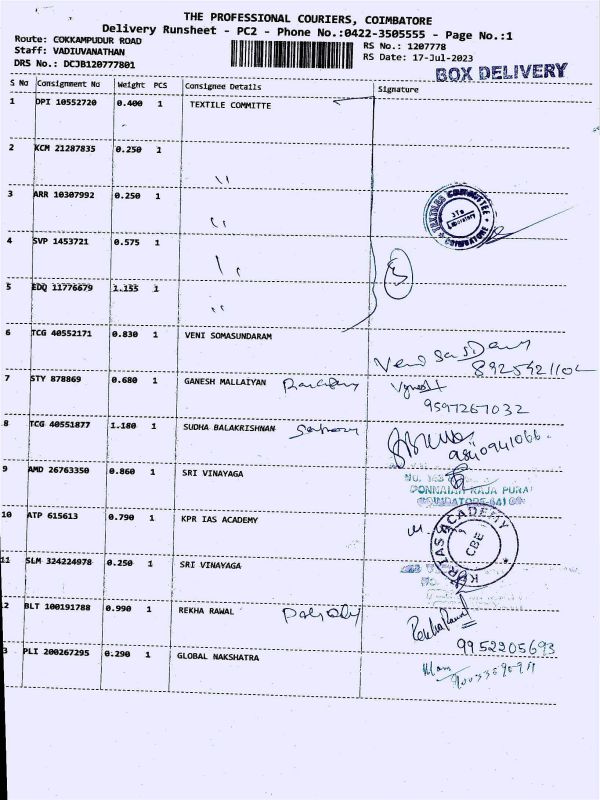 THE PROFESSIONAL COURIERS, COIMBATORE
Delivery Runsheet - PC2 - Phone No.:0422-3505555 - Page No.:1
Route: COKKAMPUDUR ROAD
Staff: VADIUVANATHAN
DRS No.: DCJB120777801
RS No.: 1207778
RS Date: 17-Jul-2023
BOX DELIVERY
S No Consignment No Weight PCS Consignee Details Signature
1 DPI 10552720 0.400 1 TEXTILE COMMITTE
2 KCM 21287835 0.250 1 "
3 ARR 10307992 0.250 1 "
TEXTILES COMMITTEE
Laboratory
COIMBATORE
4 SVP 1453721 0.575 1 "
5 EDQ 11776679 1.155 1 "
6 TCG 40552171 0.830 1 VENI SOMASUNDARAM
8925421102
7 STY 878869 0.680 1 GANESH MALLAIYAN
9597267032
8 TCG 40551877 1.180 1 SUDHA BALAKRISHNAN
9 AMD 26763350 0.860 1 SRI VINAYAGA
PONNAIAH RAJA PURAM
COIMBATORE-641 001
10 ATP 615613 0.790 1 KPR IAS ACADEMY
KPR IAS ACADEMY
CBE
11 SLM 324224978 0.250 1 SRI VINAYAGA
2 BLT 100191788 0.990 1 REKHA RAWAL
Rekha Rawal
9952205693
3 PLI 200267295 0.290 1 GLOBAL NAKSHATRA